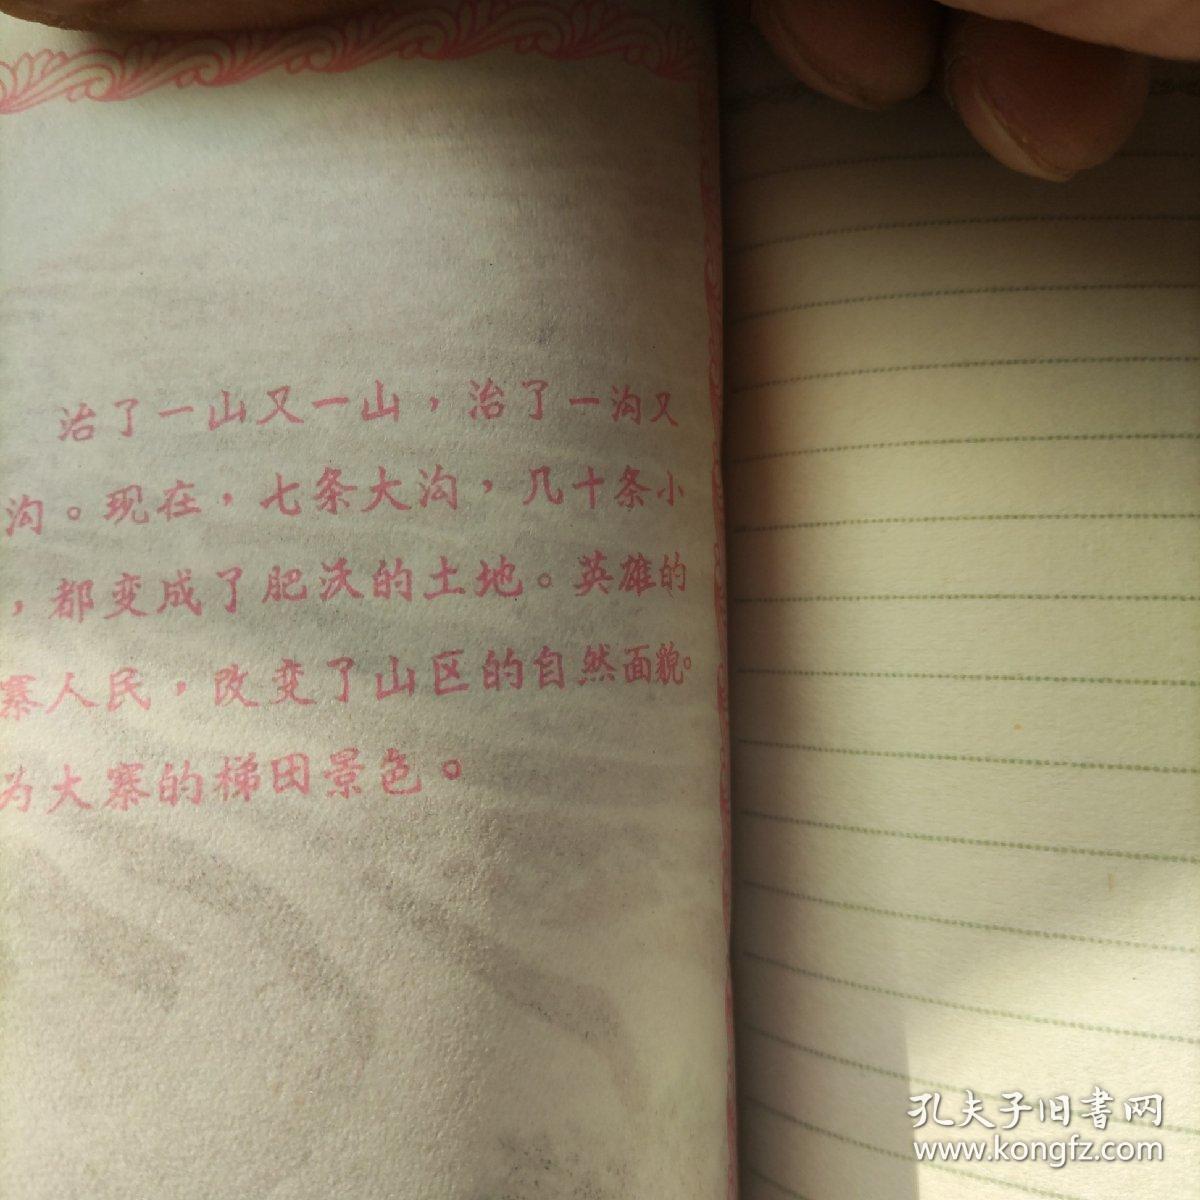 治了一山又一山，治了一沟又
沟。现在，七条大沟，几十条小
，都变成了肥沃的土地。英雄的
寨人民，改变了山区的自然面貌。
为大寨的梯田景色。
孔夫子旧书网
www.kongfz.com